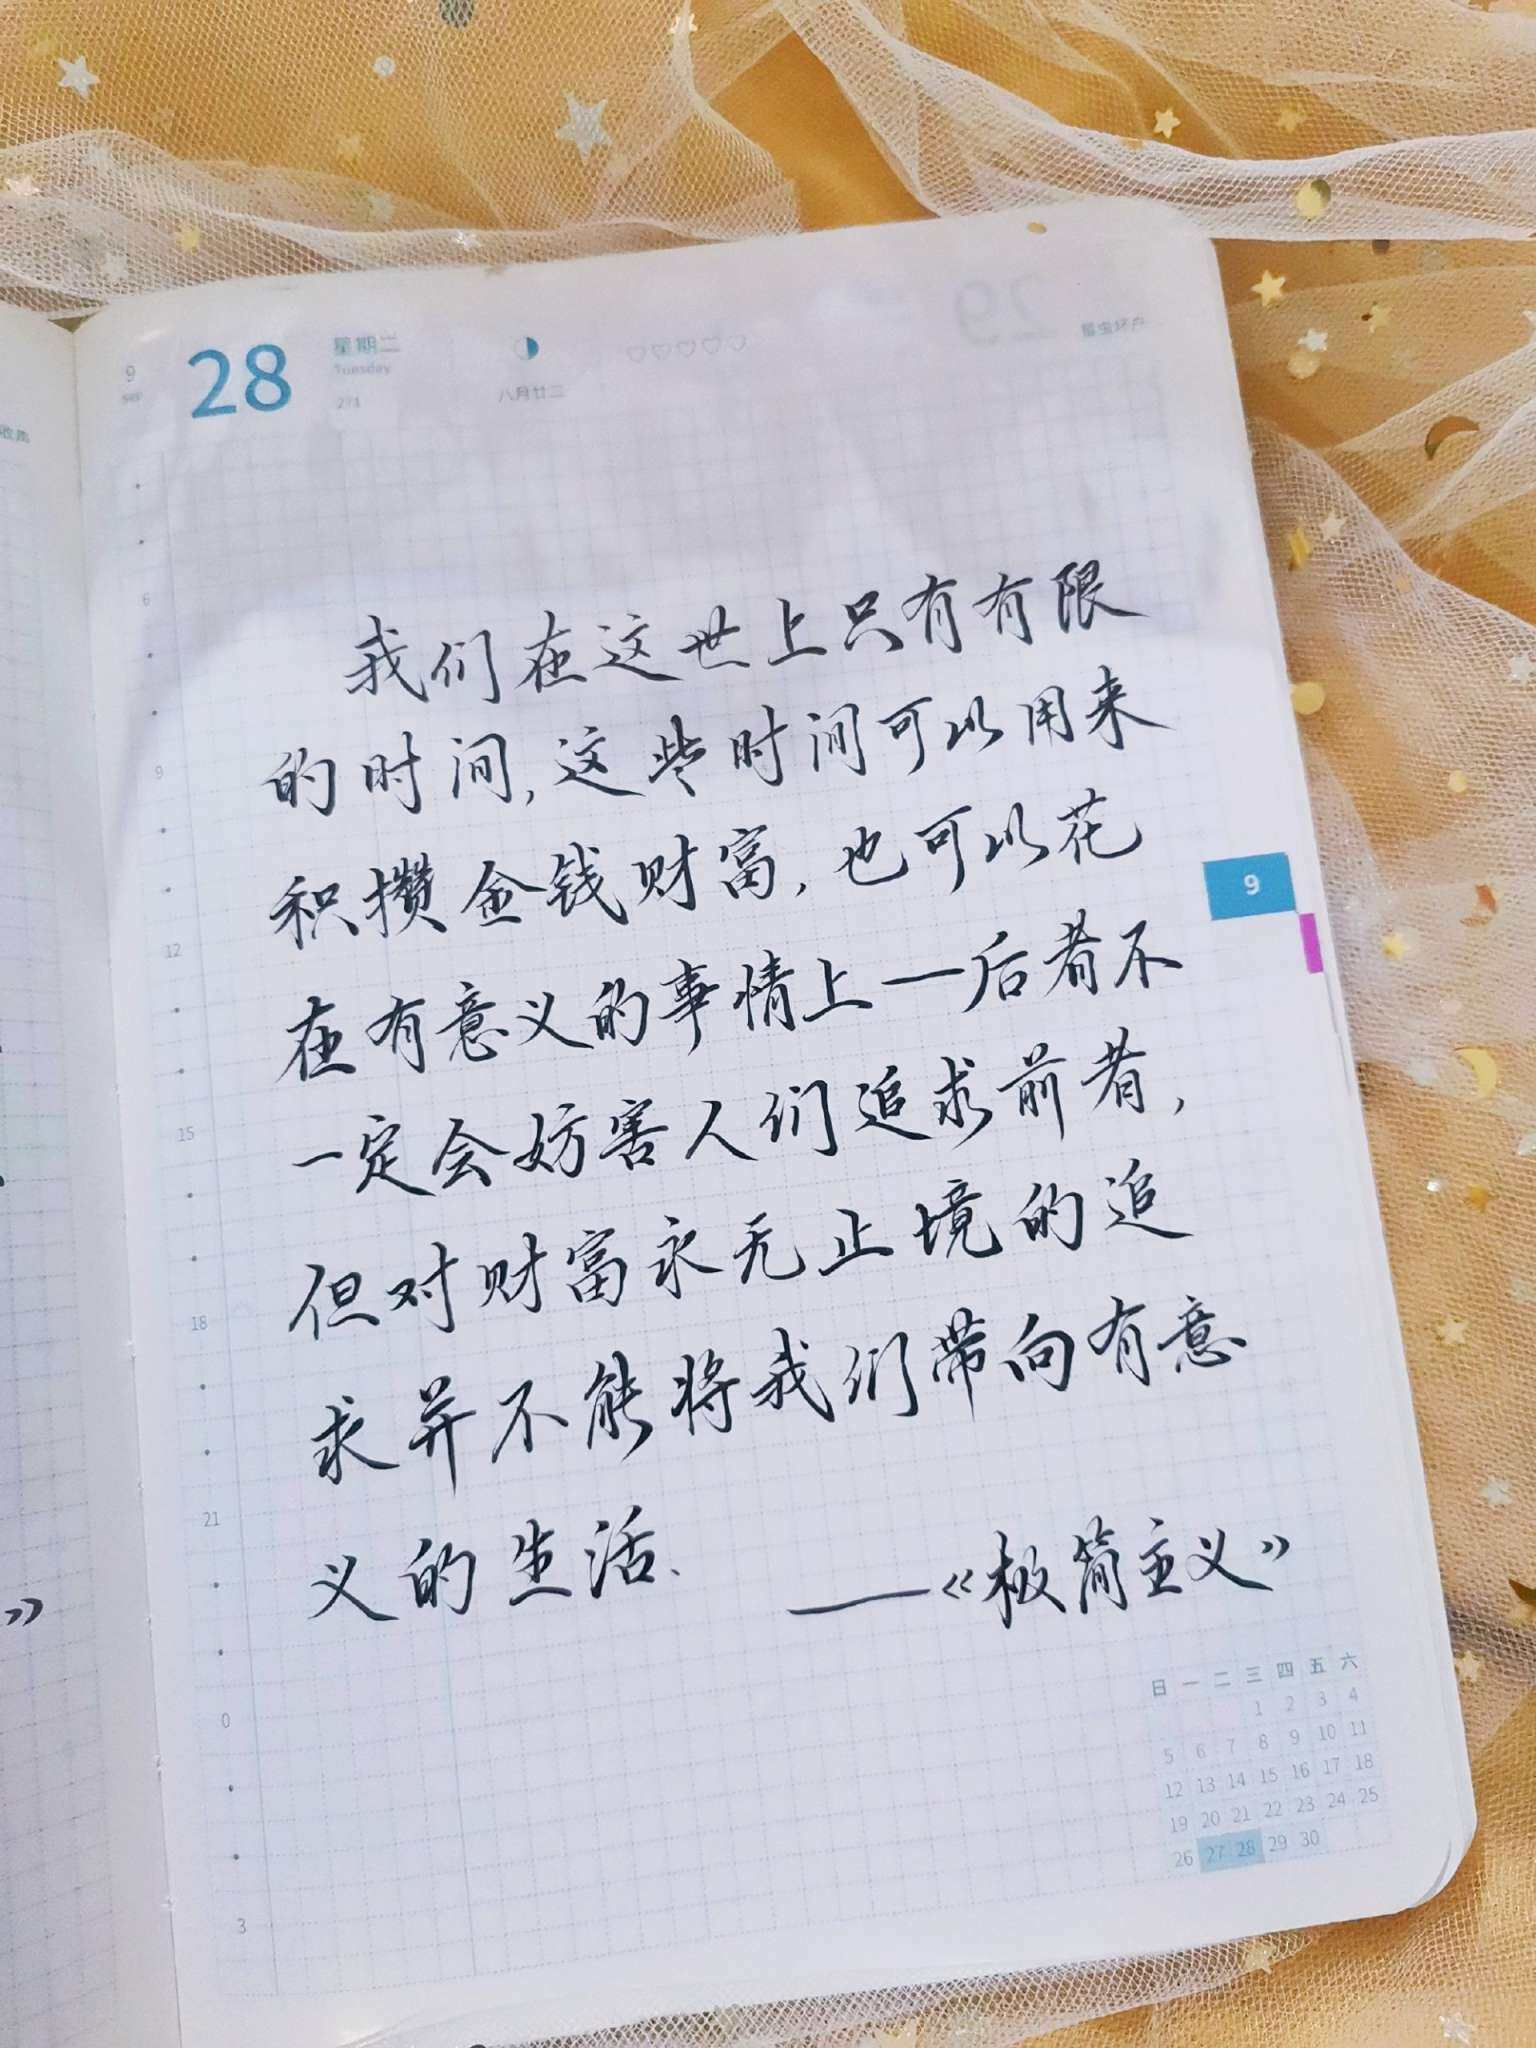 9
28
星期二
Tuesday
271
八月廿二
29
我们在这世上只有有限
的时间,这些时间可以用来
积攒金钱财富,也可以花
在有意义的事情上一后者不
一定会妨害人们追求前者,
但对财富永无止境的追
求并不能将我们带向有意
义的生活.
——《极简主义》
9
6
9
12
15
18
21
0
3
日 一 二 三 四 五 六
1 2 3 4
5 6 7 8 9 10 11
12 13 14 15 16 17 18
19 20 21 22 23 24 25
26 27 28 29 30
》